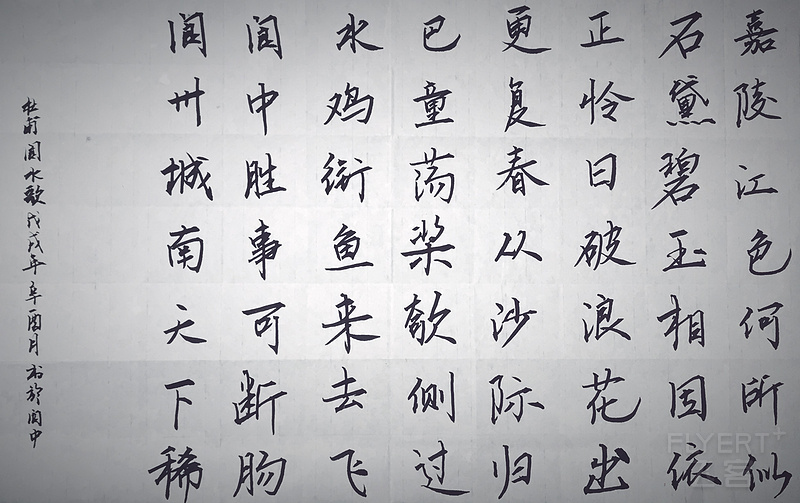 嘉陵江色何所似
石黛碧玉相因依
正怜日破浪花出
更复春从沙际归
巴童荡桨欹侧过
水鸡衔鱼来去飞
阆中胜事可断肠
阆州城南天下稀
杜甫阆水歌戊戌年辛酉月书於阆中
FLYERT+